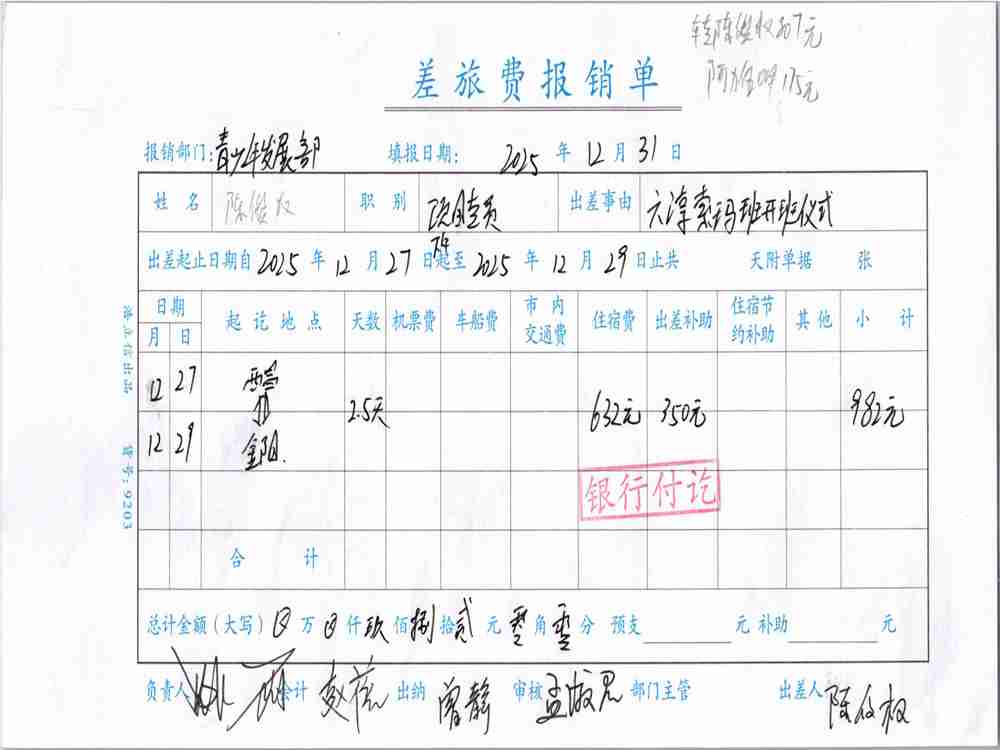 转陈俊权807元
175元
差旅费报销单
报销部门：青少年发展部 填报日期： 2025 年 12 月 31 日
姓名 陈俊权 职别 项目专员 出差事由 六淳索玛班开班仪式
出差起止日期自 2025 年 12 月 27 日起至 2025 年 12 月 29 日止共 天附单据 张
日期 起讫地点 天数 机票费 车船费 市内交通费 住宿费 出差补助 住宿节约补助 其他 小计
月 日
12 27 西昌
到 2.5天 632元 350元 982元
12 29 金阳.
银行付讫
合计
总计金额（大写）⊗ 万 ⊗ 仟 玖 佰 捌 拾 贰 元 零 角 零 分 预支 元 补助 元
负责人 会计 出纳 曾静 审核 孟淑君 部门主管 出差人 陈俊权
货号：9203